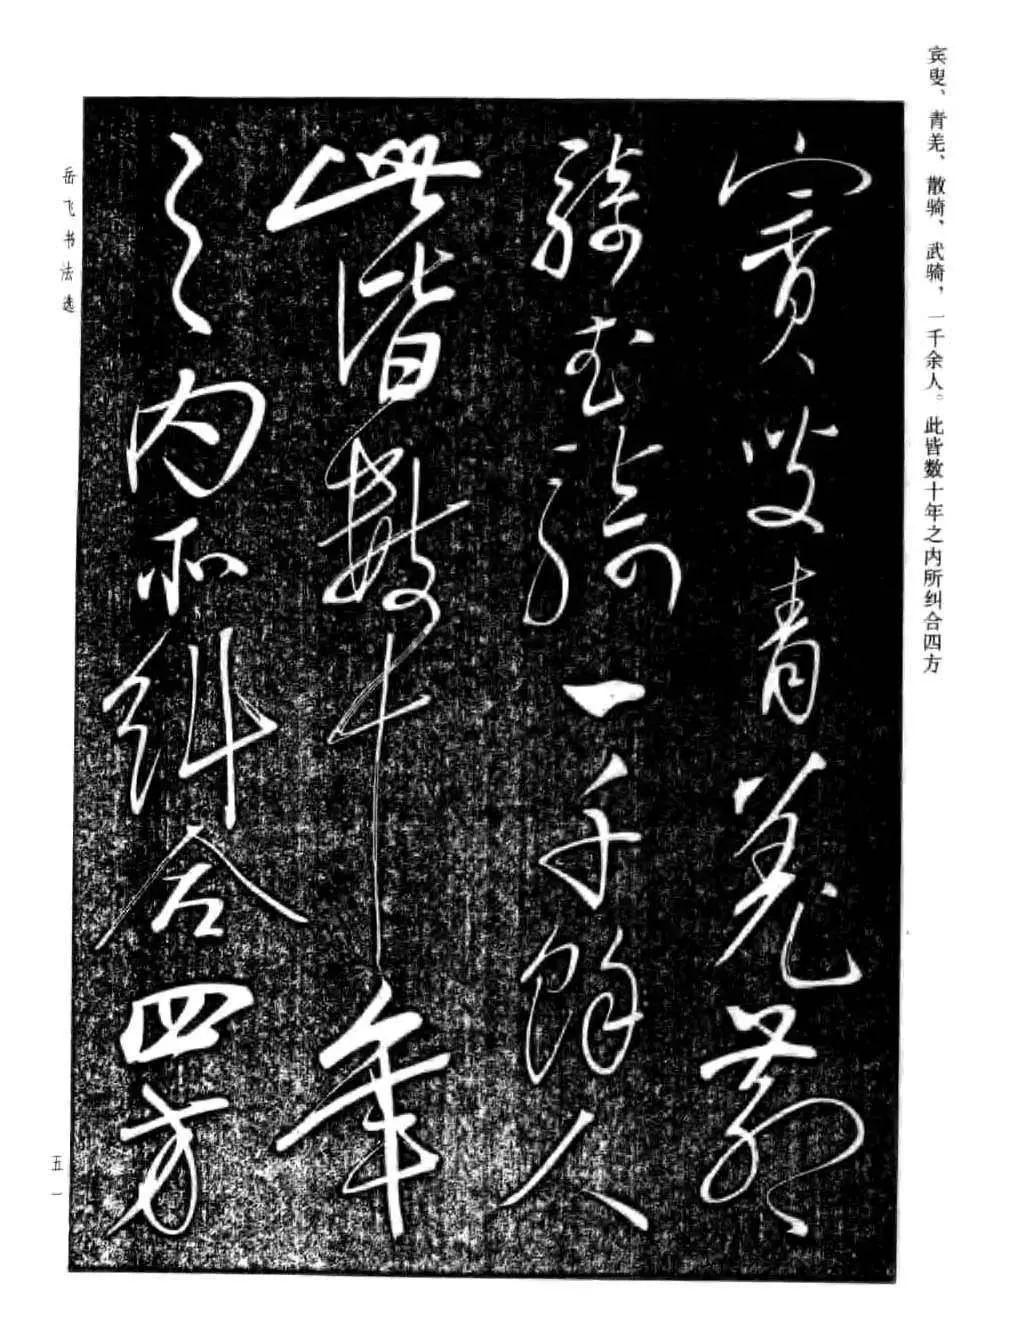 宾叟、青羌、散骑、武骑，一千余人。此皆数十年之内所纠合四方
賨叟青羌散
騎武騎一千餘人
此皆數十年
之内所糾合四方
岳飞书法选
五一